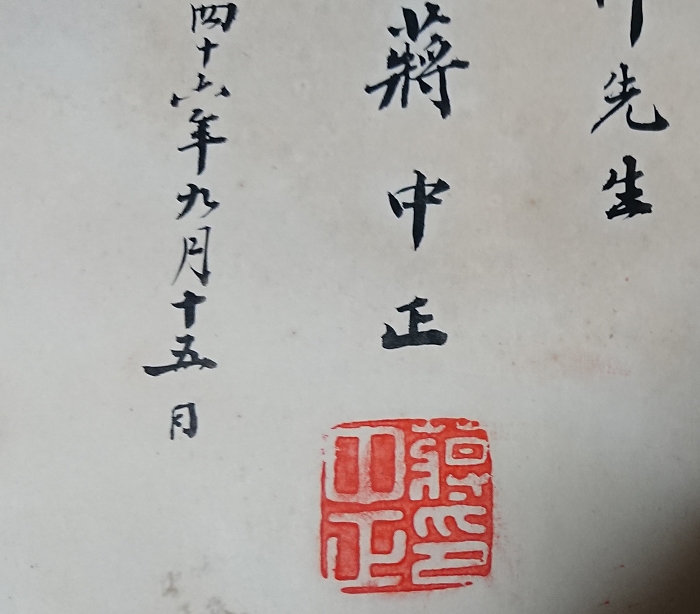 先生
蔣中正
四十六年九月十五日
蔣印
中正